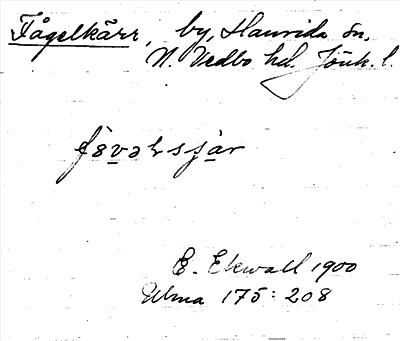 Fågelkärr, by, Haurida sn,
N. Vedbo hd. Jönk. l.
E. Ekwall 1900
Ulma 175: 208